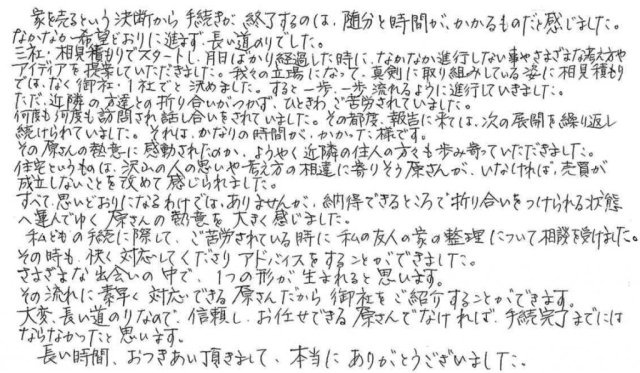 家を売るという決断から手続きが終了するのは、随分と時間が、かかるものだと感じました。
なかなか希望どおりに進まず、長い道のりでした。
三社・相見積もりでスタートし、月日ばかり経過した時に、なかなか進行しない事やさまざまな考え方や
アイディアを提案していただきました。我々の立場になって、真剣に取り組みしている姿に相見積もり
ではなく御社・1社でと決めました。すると一歩、一歩流れるように進行していきました。
ただ、近隣の方達との折り合いがつかず、ひときわご苦労されていました。
何度も何度も訪問され話し合いをされていました。その都度、報告に来ては、次の展開を繰り返し
続けられていました。それは、かなりの時間が、かかった様です。
その原さんの熱意に感動されたのか、ようやく近隣の住人の方々も歩み寄っていただきました。
住宅というものは、沢山の人の思いや考え方の相違に寄りそう原さんが、いなければ、売買が
成立しないことを改めて感じられました。
すべて思いどおりになるわけでは、ありませんが、納得できるところで折り合いをつけられる状態
へ運んでゆく原さんの熱意を大きく感じました。
私どもの手続に際して、ご苦労されている時に私の友人の家の整理について相談を受けました。
その時も、快く対応してくださりアドバイスをすることができました。
さまざまな出会いの中で、1つの形が生まれると思います。
その流れに素早く対応できる原さんだから御社をご紹介することができます。
大変、長い道のりなので、信頼し、お任せできる原さんでなければ、手続完了までには
ならなかったと思います。
長い時間、おつきあい頂きまして、本当にありがとうございました。